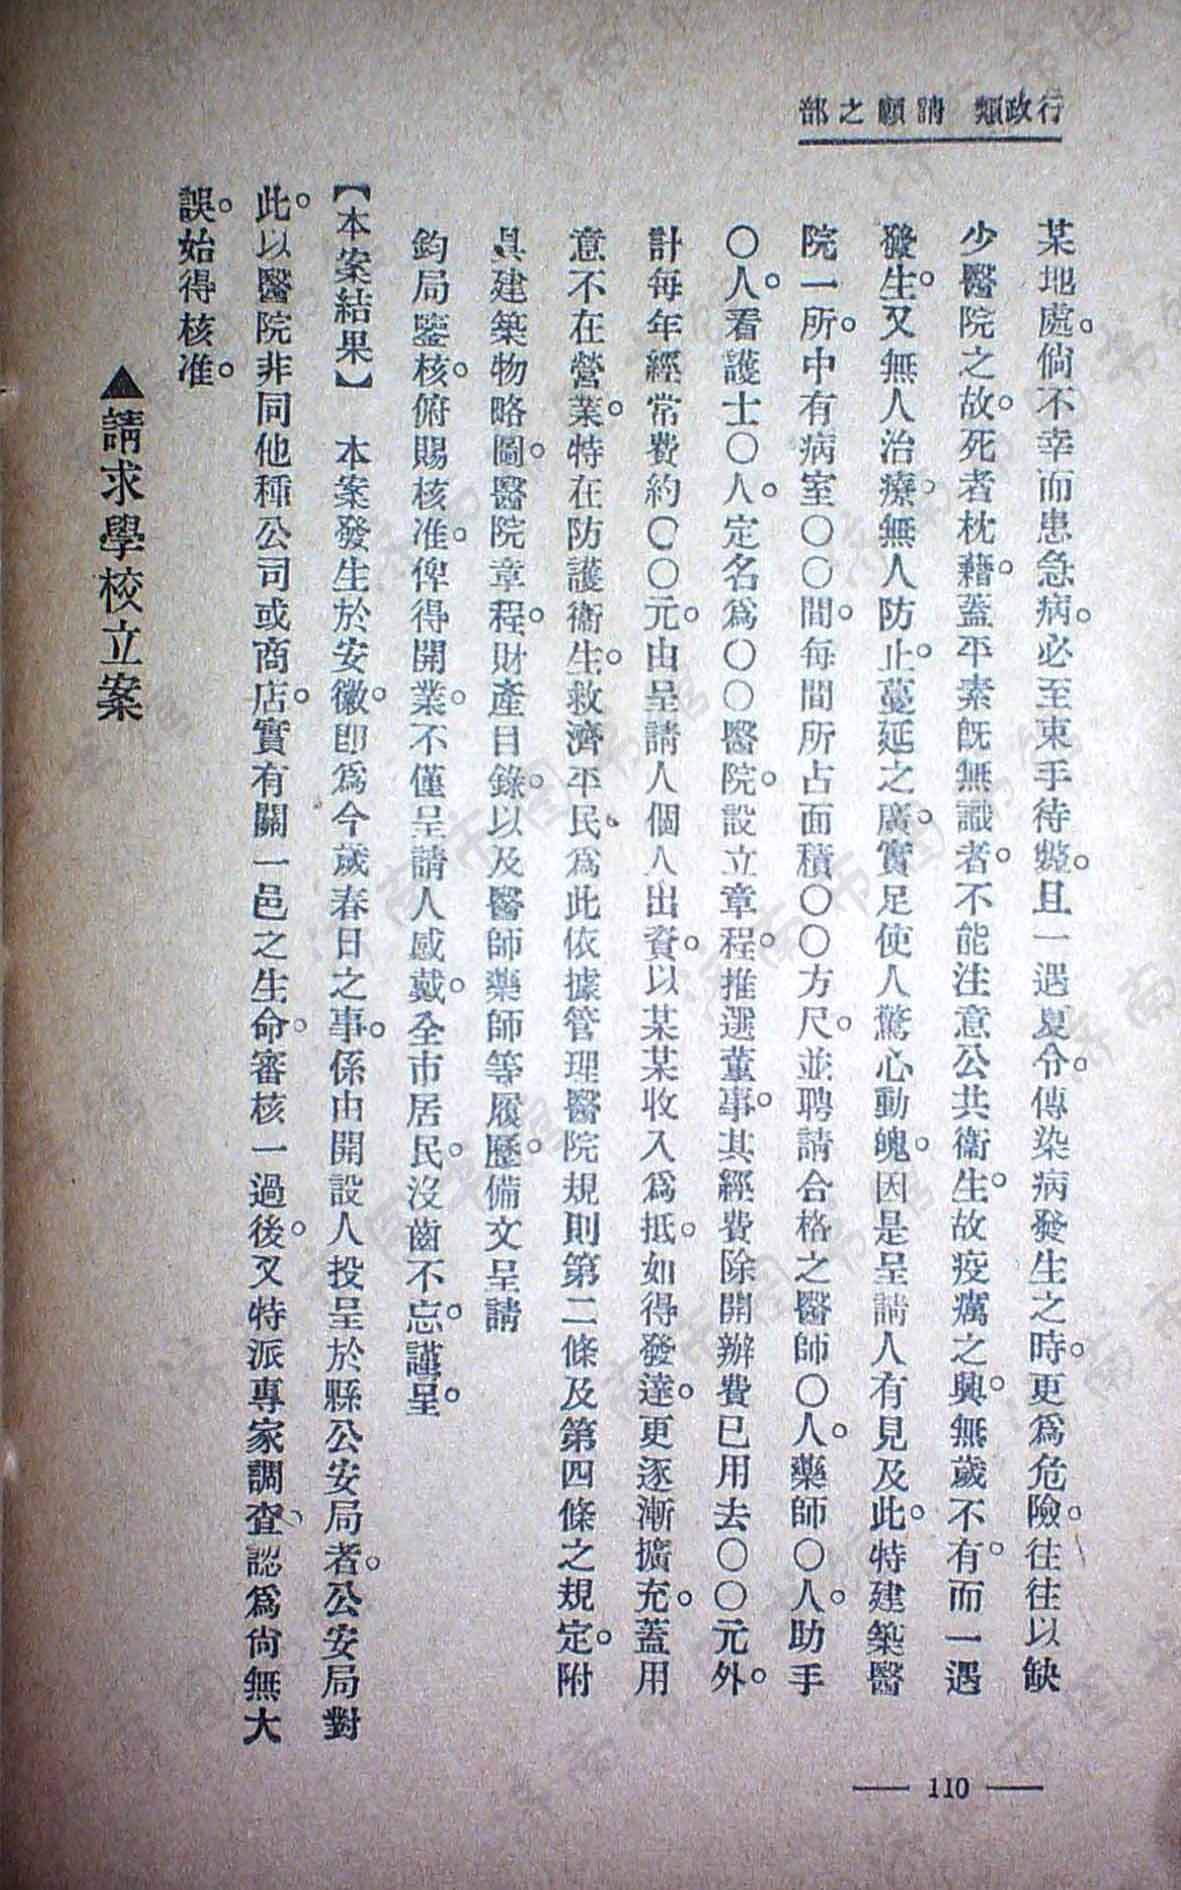 行政類 請願之部
某地處。倘不幸而患急病。必至束手待斃。且一遇夏令。傳染病發生之時。更爲危險。往往以缺
少醫院之故。死者枕藉。蓋平素旣無識者。不能注意公共衞生。故疫癘之興。無歲不有。而一遇
發生。又無人治療。無人防止。蔓延之廣。實足使人驚心動魄。因是呈請人有見及此。特建築醫
院一所。中有病室〇〇間。每間所占面積〇〇方尺。並聘請合格之醫師〇人。藥師〇人。助手
〇人。看護士〇人。定名爲〇〇醫院。設立章程。推選董事。其經費除開辦費已用去〇〇元外。
計每年經常費約〇〇元。由呈請人個人出資。以某某收入爲抵。如得發達。更逐漸擴充。蓋用
意不在營業。特在防護衞生。救濟平民。爲此依據管理醫院規則第二條及第四條之規定。附
具建築物略圖。醫院章程。財產目錄。以及醫師藥師等履歷。備文呈請
鈞局鑒核。俯賜核准。俾得開業。不僅呈請人感戴。全市居民。沒齒不忘。謹呈。
【本案結果】 本案發生於安徽。卽爲今歲春日之事。係由開設人投呈於縣公安局者。公安局對
此。以醫院非同他種公司或商店。實有關一邑之生命。審核一過後。又特派專家調查。認爲尙無大
誤。始得核准。
▲請求學校立案
— 110 —
济南市图书馆